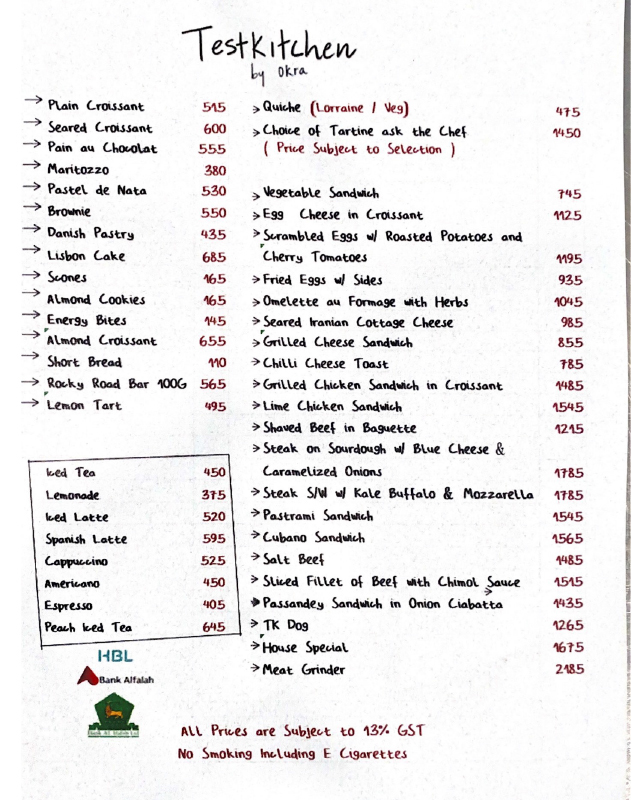 TestKitchen
by Okra
→ Plain Croissant 515
→ Seared Croissant 600
→ Pain au Chocolat 555
→ Maritozzo 380
→ Pastel de Nata 530
→ Brownie 550
→ Danish Pastry 435
→ Lisbon Cake 685
→ Scones 165
→ Almond Cookies 165
→ Energy Bites 145
→ Almond Croissant 655
→ Short Bread 110
→ Rocky Road Bar 100G 565
→ Lemon Tart 495
Iced Tea 450
Lemonade 375
Iced Latte 520
Spanish Latte 595
Cappuccino 525
Americano 450
Espresso 405
Peach Iced Tea 645
HBL
Bank Alfalah
Bank Al Habib Ltd
> Quiche (Lorraine / Veg) 475
> Choice of Tartine ask the Chef 1450
( Price Subject to Selection )
> Vegetable Sandwich 745
> Egg Cheese in Croissant 1125
> Scrambled Eggs w/ Roasted Potatoes and
Cherry Tomatoes 1195
> Fried Eggs w/ Sides 935
> Omelette au Formage with Herbs 1045
> Seared Iranian Cottage Cheese 985
> Grilled Cheese Sandwich 855
> Chilli Cheese Toast 785
> Grilled Chicken Sandwich in Croissant 1485
> Lime Chicken Sandwich 1545
> Shaved Beef in Baguette 1215
> Steak on Sourdough w/ Blue Cheese &
Caramelized Onions 1785
> Steak S/W w/ Kale Buffalo & Mozzarella 1785
> Pastrami Sandwich 1545
> Cubano Sandwich 1565
> Salt Beef 1485
> Sliced Fillet of Beef with Chimol Sauce 1515
> Passandey Sandwich in Onion Ciabatta 1435
> TK Dog 1265
> House Special 1675
> Meat Grinder 2185
All Prices are Subject to 13% GST
No Smoking Including E Cigarettes